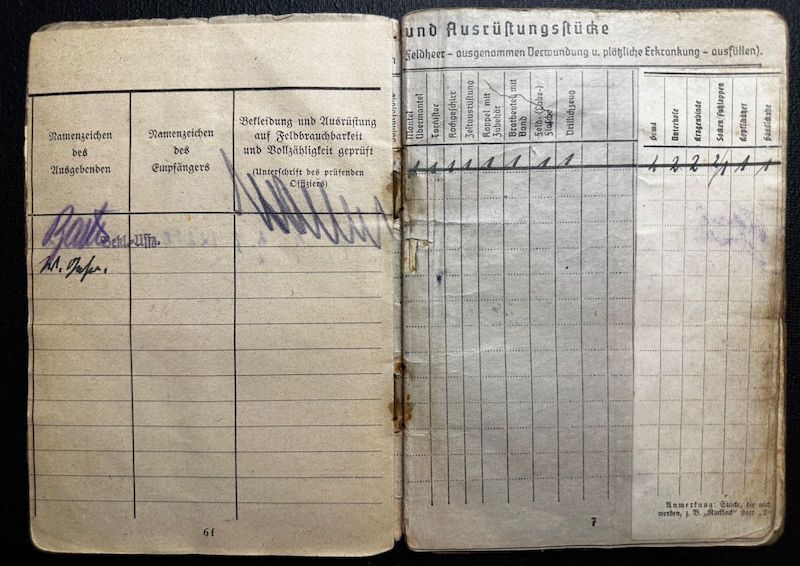 Namenzeichen
des
Ausgebenden
Namenzeichen
des
Empfängers
Bekleidung und Ausrüstung
auf Feldbrauchbarkeit
und Vollzähligkeit geprüft
(Unterschrift des prüfenden
Offiziers)
Bekl.-Uffz.
6f
und Ausrüstungsstücke
Feldheer – ausgenommen Verwundung u. plötzliche Erkrankung – ausfüllen).
Mantel
Übermantel
Tornister
Kochgeschirr
Zeltausrüstung
Koppel mit
Zubehör
Brotbeutel mit
Band
Feld-(Labe-)
Flasche
Wollachzeug
Hemd
Unterhose
Kragenbinde
Socken/Fußlappen
Kopfschützer
Handschuhe
1 1 1 1 1 1 1 1 2 2 2/1 1 1
Anmerkung: Stücke, die nich
werden, z. B. „Rucksack“ statt „T
7